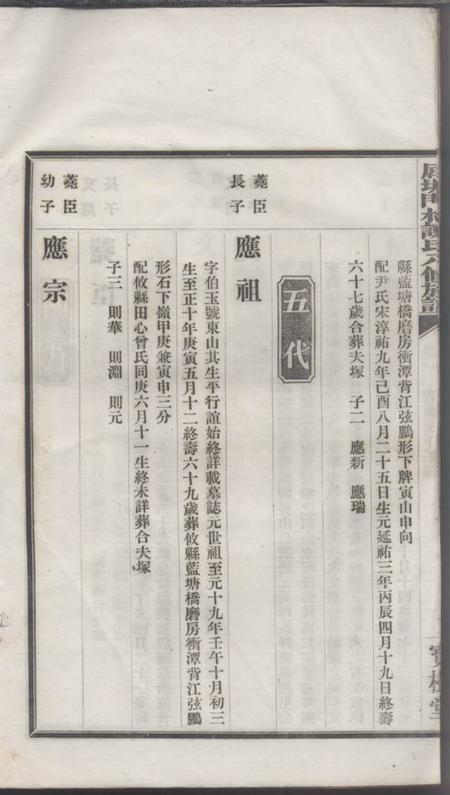 縣藍塘橋磨房衝潭背江弦鵬形下牌寅山申向
配尹氏宋淳祐九年己酉八月二十五日生元延祐三年丙辰四月十九日終壽
六十七歲合葬夫塚 子二 應新 應瑞
五代
蕘臣
長子
應祖
字伯玉號東山其生平行誼始終詳載墓誌元世祖至元十九年壬午十月初三
生至正十年庚寅五月十二終壽六十九歲葬攸縣藍塘橋磨房衝潭背江弦鵬
形石下嶺甲庚兼寅申三分
配攸縣田心曾氏同庚六月十一生終未詳葬合夫塚
子三 則華 則淵 則元
蕘臣
幼子
應宗